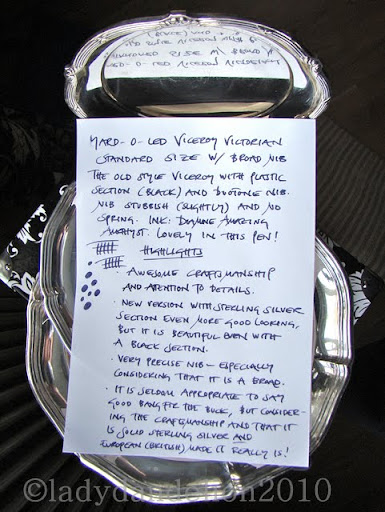 YARD-O-LED VICEROY VICTORIAN
STANDARD SIZE W/ BROAD NIB
THE OLD STYLE VICEROY WITH PLASTIC
SECTION (BLACK) AND DUOTONE NIB.
NIB STUBBISH (SLIGHTLY) AND NO
SPRING. INK: DIAMINE AMAZING
AMETHYST. LOVELY IN THIS PEN!
HIGHLIGHTS
· AWESOME CRAFTSMANSHIP
AND ATTENTION TO DETAILS.
· NEW VERSION WITH STERLING SILVER
SECTION EVEN MORE GOOD LOOKING,
BUT IT IS BEAUTIFUL EVEN WITH
A BLACK SECTION.
· VERY PRECISE NIB – ESPECIALLY
CONSIDERING THAT IT IS A BROAD.
· IT IS SELDOM APPROPRIATE TO SAY
GOOD BANG FOR THE BUCK, BUT CONSIDER-
ING THE CRAFTSMANSHIP AND THAT IT
IS SOLID STERLING SILVER AND
EUROPEAN (BRITISH) MADE IT REALLY IS!
©ladydandelion2010